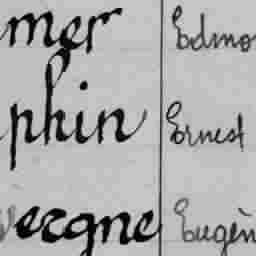 mer Edmo
phin Ernest
vergne Eugèn